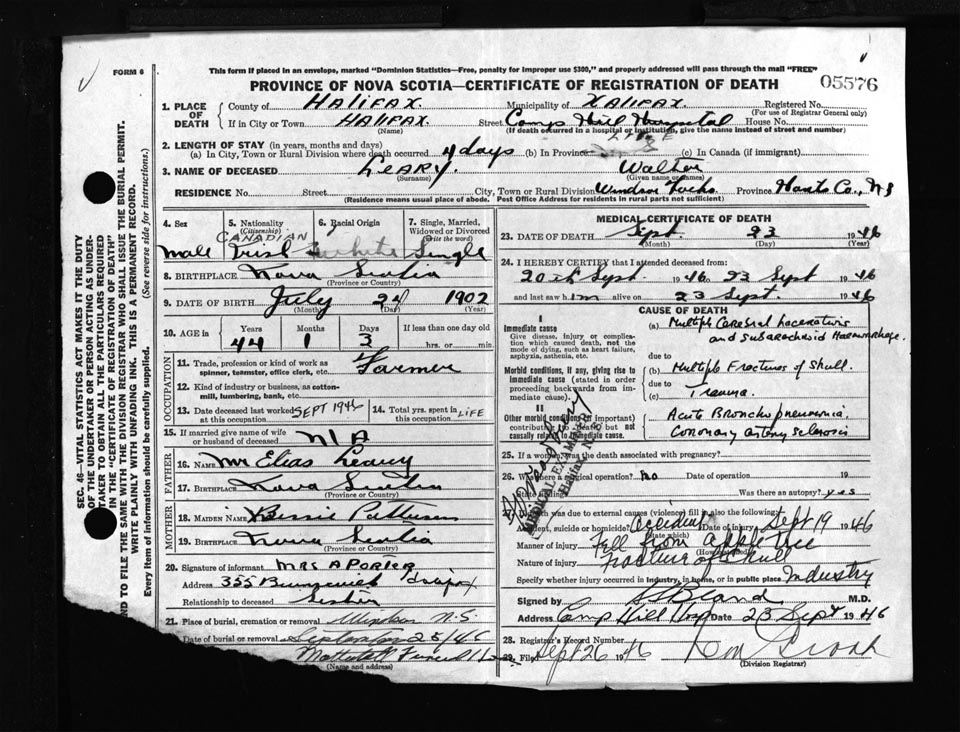 FORM 6
This form if placed in an envelope, marked "Dominion Statistics—Free, penalty for improper use $300," and properly addressed will pass through the mail "FREE"
PROVINCE OF NOVA SCOTIA—CERTIFICATE OF REGISTRATION OF DEATH
05576
1. PLACE OF DEATH
County of Halifax.
Municipality of Halifax.
Registered No.
(For use of Registrar General only)
If in City or Town Halifax.
(Name)
Street Camp Hill Hospital House No.
(If death occurred in a hospital or institution, give the name instead of street and number)
2. LENGTH OF STAY (in years, months and days)
(a) In City, Town or Rural Division where death occurred 4 days (b) In Province LIFE (c) In Canada (if immigrant)
3. NAME OF DECEASED Leary. Walter
(Surname) (Given name or names)
RESIDENCE No. Street City, Town or Rural Division Windsor Forks. Province Hants Co., NS
(Residence means usual place of abode. Post Office Address for residents in rural parts not sufficient)
4. Sex
male
5. Nationality (Citizenship)
CANADIAN
Irish
6. Racial Origin
white
7. Single, Married, Widowed or Divorced (write the word)
Single
8. BIRTHPLACE Nova Scotia
(Province or Country)
9. DATE OF BIRTH July 24 1902
(Month) (Day) (Year)
10. AGE in
Years Months Days If less than one day old
44 1 3 hrs. or min.
OCCUPATION
11. Trade, profession or kind of work as spinner, teamster, office clerk, etc. Farmer
12. Kind of industry or business, as cotton-mill, lumbering, bank, etc.
13. Date deceased last worked at this occupation SEPT 1946
14. Total yrs. spent in this occupation LIFE
15. If married give name of wife or husband of deceased N/A
FATHER
16. NAME Mr Elias Leary
17. BIRTHPLACE Nova Scotia
(Province or Country)
MOTHER
18. MAIDEN NAME Bessie Patterson
19. BIRTHPLACE Nova Scotia
(Province or Country)
20. Signature of informant MRS A PORTER
Address 355 Brunswick Halifax
Relationship to deceased Sister
21. Place of burial, cremation or removal Windsor N.S
Date of burial or removal September 25/46
Funeral Home
(Name and address)
MEDICAL CERTIFICATE OF DEATH
23. DATE OF DEATH Sept. 23 1946
(Month) (Day) (Year)
24. I HEREBY CERTIFY that I attended deceased from:
20th Sept. 1946 23 Sept 1946
and last saw him alive on 23 Sept. 1946
CAUSE OF DEATH
I
Immediate cause
Give disease, injury or complication which caused death, not the mode of dying, such as heart failure, asphyxia, asthenia, etc.
(a) Multiple Cerebral lacerations and Subarachnoid Haemorrhage.
due to
Morbid conditions, if any, giving rise to immediate cause (stated in order proceeding backwards from immediate cause).
(b) Multiple Fractures of Skull.
due to
(c) Trauma.
II
Other morbid conditions (if important) contributing to death but not causally related to immediate cause.
Acute Bronchopneumonia
Coronary artery sclerosis
MEDICAL EXAMINER
Halifax, N.S.
25. If a woman, was the death associated with pregnancy?
26. Was there a surgical operation? no Date of operation 19
State findings Was there an autopsy? yes
27. If death was due to external causes (violence) fill in also the following:
Accident, suicide or homicide? Accident Date of injury Sept 19 1946
(State which)
Manner of injury Fell from apple tree
(How sustained)
Nature of injury Fracture of Skull
Specify whether injury occurred in industry, in home, or in public place Industry
Signed by Bland M.D.
Address Camp Hill Hosp Date 23 Sept 1946
28. Registrar's Record Number
29. Filed Sept 26 1946
(Division Registrar)
SEC. 46—VITAL STATISTICS ACT MAKES IT THE DUTY
OF THE UNDERTAKER OR PERSON ACTING AS UNDER-
TAKER TO OBTAIN ALL THE PARTICULARS REQUIRED
IN THE "CERTIFICATE OF REGISTRATION OF DEATH"
AND TO FILE THE SAME WITH THE DIVISION REGISTRAR WHO SHALL ISSUE THE BURIAL PERMIT.
WRITE PLAINLY WITH UNFADING INK. THIS IS A PERMANENT RECORD.
Every item of information should be carefully supplied. (See reverse side for instructions.)